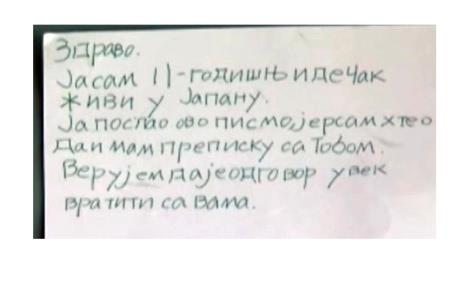 Здраво.
Ја сам 11-годишњи дечак
живи у Јапану.
Ја послао ово писмо, јер сам хтео
да имам преписку са Тобом.
Верујем да је одговор увек
вратити са вама.